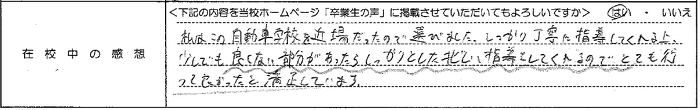 ＜下記の内容を当校ホームページ「卒業生の声」に掲載させていただいてもよろしいですか＞ はい ・ いいえ
在校中の感想
私はこの自動車学校を近場だったので選びました。しっかり丁寧に指導してくれる上、
少しでも良くない部分があったらしっかりとした指導をしてくれるのでとても行
って良かったと満足しています。